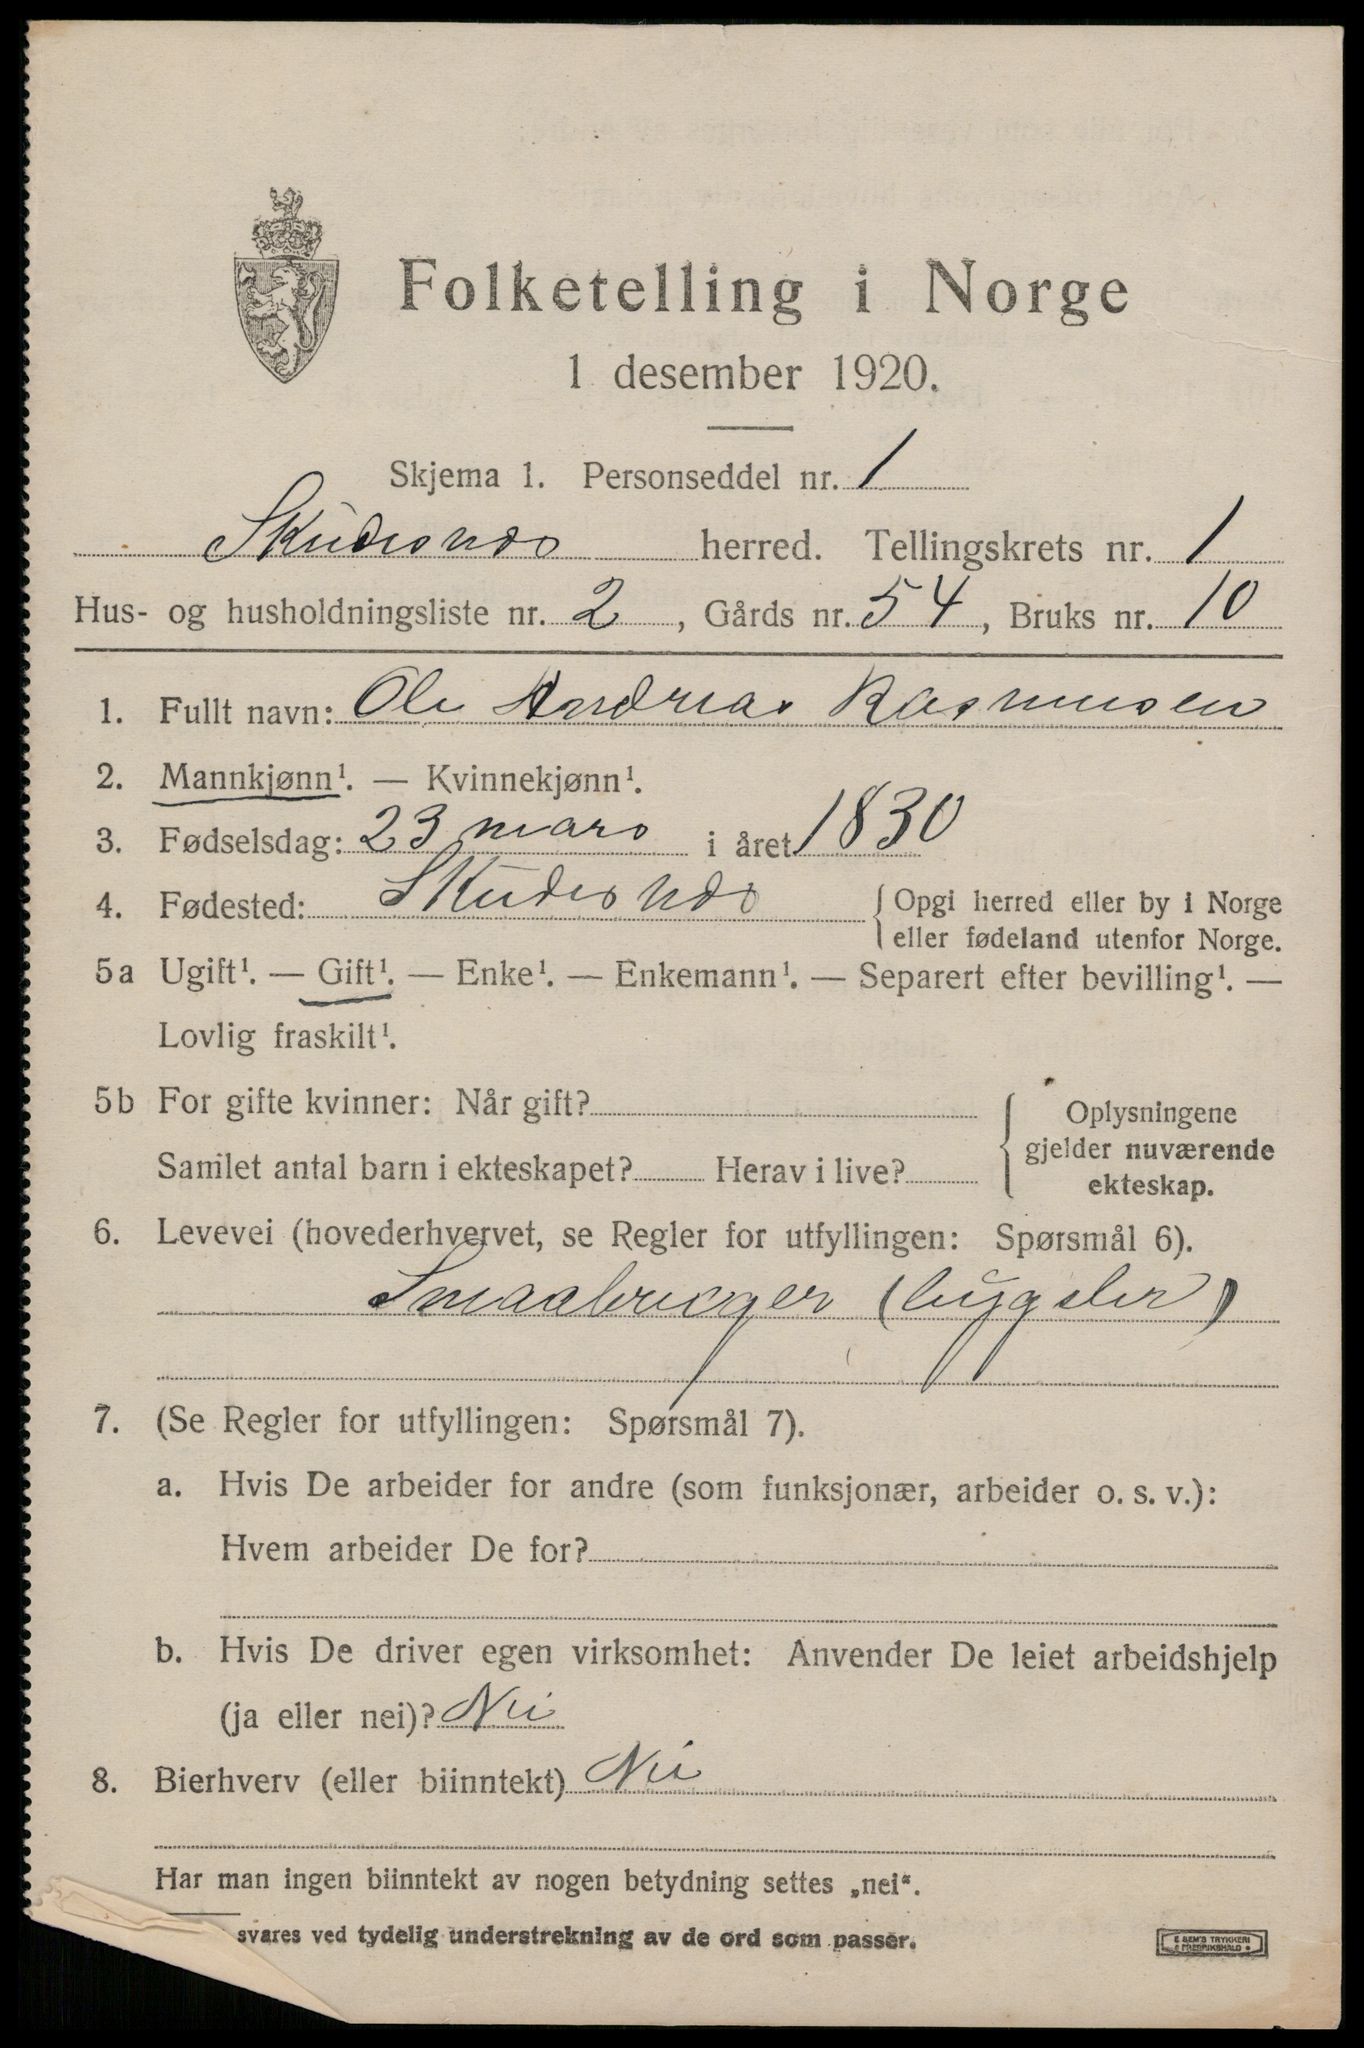 Folketelling i Norge
1 desember 1920.
Skjema 1. Personseddel nr. 1
Skudesnes herred. Tellingskrets nr. 1
Hus- og husholdningsliste nr. 2, Gårds nr. 54, Bruks nr. 10
1. Fullt navn: Ole Andreas Rasmussen
2. Mannkjønn¹. — Kvinnekjønn¹.
3. Fødselsdag: 23 mars i året 1830
4. Fødested: Skudesnes { Opgi herred eller by i Norge
eller fødeland utenfor Norge.
5a Ugift¹. — Gift¹. — Enke¹. — Enkemann¹. — Separert efter bevilling¹. —
Lovlig fraskilt¹.
5b For gifte kvinner: Når gift? { Oplysningene
gjelder nuværende
Samlet antal barn i ekteskapet? Herav i live?
ekteskap.
6. Levevei (hovederhvervet, se Regler for utfyllingen: Spørsmål 6).
Smaabruger (bygsler)
7. (Se Regler for utfyllingen: Spørsmål 7).
a. Hvis De arbeider for andre (som funksjonær, arbeider o. s. v.):
Hvem arbeider De for?
b. Hvis De driver egen virksomhet: Anvender De leiet arbeidshjelp
(ja eller nei)? Nei
8. Bierhverv (eller biinntekt) Nei
Har man ingen biinntekt av nogen betydning settes „nei“.
svares ved tydelig understrekning av de ord som passer.
E SEM'S TRYKKERI
FREDRIKSHALD